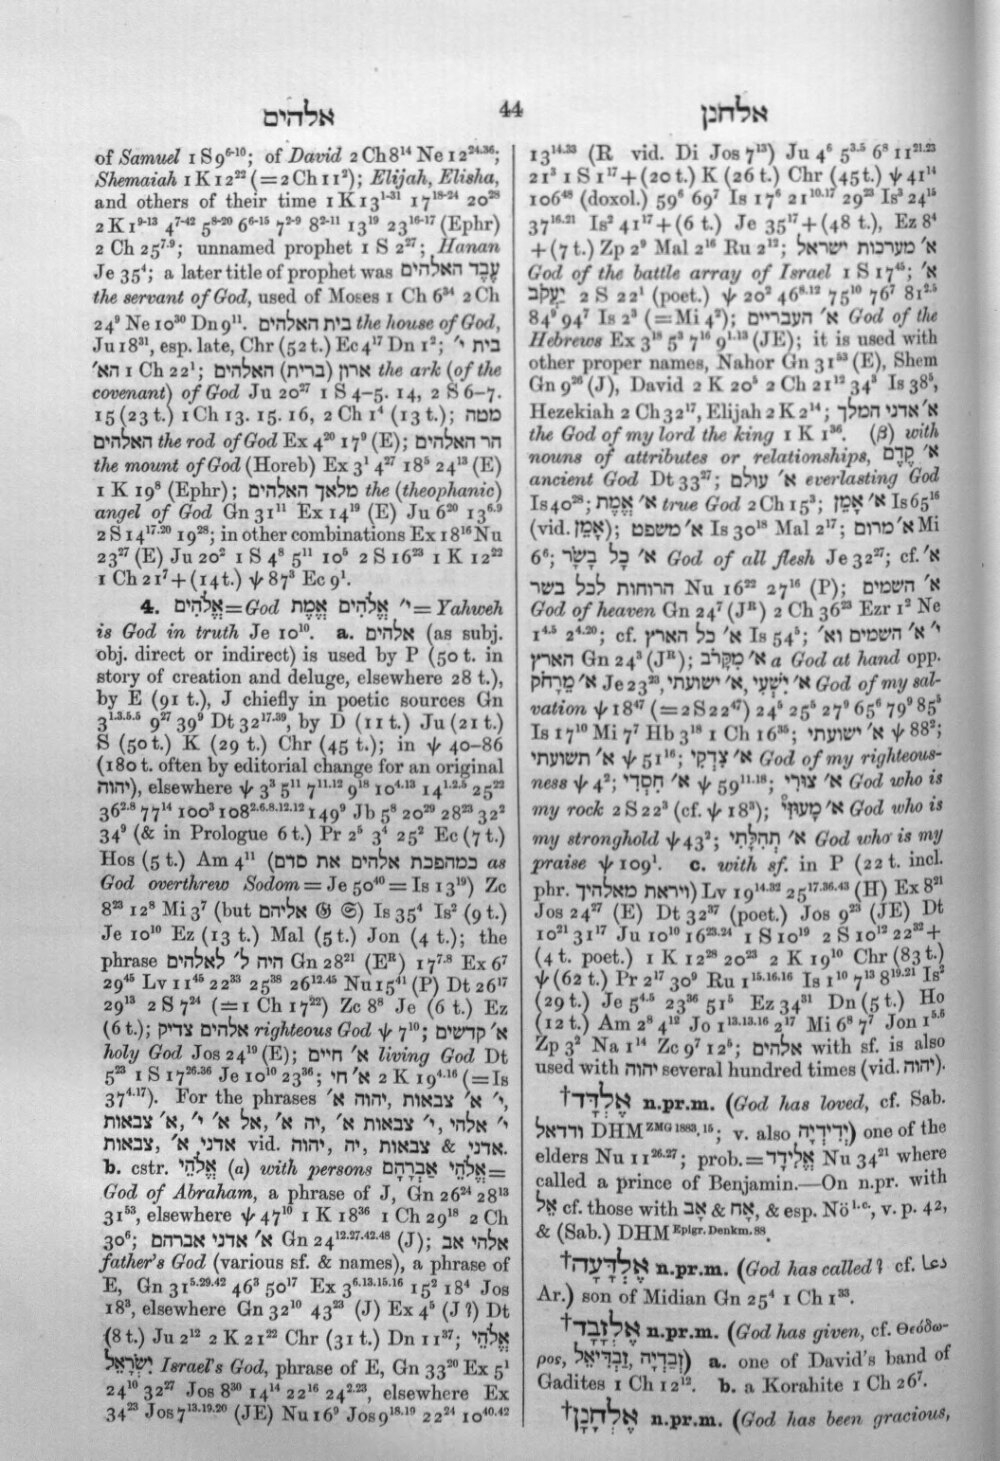 אלהים
44
אלחנן
of Samuel 1 S 9⁶⁻¹⁰; of David 2 Ch 8¹⁴ Ne 12²⁴·³⁶;
Shemaiah 1 K 12²² (=2 Ch 11²); Elijah, Elisha,
and others of their time 1 K 13¹⁻³¹ 17¹⁸⁻²⁴ 20²⁸
2 K 1⁹⁻¹³ 4⁷⁻⁴² 5⁸⁻²⁰ 6⁶⁻¹⁵ 7²⁻⁹ 8²⁻¹¹ 13¹⁹ 23¹⁶⁻¹⁷ (Ephr)
2 Ch 25⁷·⁹; unnamed prophet 1 S 2²⁷; Hanan
Je 35⁴; a later title of prophet was עֶבֶד האלהים
the servant of God, used of Moses 1 Ch 6³⁴ 2 Ch
24⁹ Ne 10³⁰ Dn 9¹¹. בית האלהים the house of God,
Ju 18³¹, esp. late, Chr (52 t.) Ec 4¹⁷ Dn 1²; בית י׳
הא׳ 1 Ch 22¹; ארון (ברית) האלהים the ark (of the
covenant) of God Ju 20²⁷ 1 S 4–5. 14, 2 S 6–7.
15 (23 t.) 1 Ch 13. 15. 16, 2 Ch 1⁴ (13 t.); מטה
האלהים the rod of God Ex 4²⁰ 17⁹ (E); הר האלהים
the mount of God (Horeb) Ex 3¹ 4²⁷ 18⁵ 24¹³ (E)
1 K 19⁸ (Ephr); מלאך האלהים the (theophanic)
angel of God Gn 31¹¹ Ex 14¹⁹ (E) Ju 6²⁰ 13⁶·⁹
2 S 14¹⁷·²⁰ 19²⁸; in other combinations Ex 18¹⁶ Nu
23²⁷ (E) Ju 20² 1 S 4⁸ 5¹¹ 10⁵ 2 S 16²³ 1 K 12²²
1 Ch 21⁷ + (14 t.) ψ 87³ Ec 9¹.
4. אֱלֹהִים=God י׳ אֱלֹהִים אֱמֶת=Yahweh
is God in truth Je 10¹⁰. a. אלהים (as subj.
obj. direct or indirect) is used by P (50 t. in
story of creation and deluge, elsewhere 28 t.),
by E (91 t.), J chiefly in poetic sources Gn
3¹·³·⁵·⁵ 9²⁷ 39⁹ Dt 32¹⁷·³⁹, by D (11 t.) Ju (21 t.)
S (50 t.) K (29 t.) Chr (45 t.); in ψ 40–86
(180 t. often by editorial change for an original
יהוה), elsewhere ψ 3³ 5¹¹ 7¹¹·¹² 9¹⁸ 10⁴·¹³ 14¹·²·⁵ 25²²
36²·⁸ 77¹⁴ 100³ 108²·⁶·⁸·¹²·¹² 149⁹ Jb 5⁸ 20²⁹ 28²³ 32²
34⁹ (& in Prologue 6 t.) Pr 2⁵ 3⁴ 25² Ec (7 t.)
Hos (5 t.) Am 4¹¹ (כמהפכת אלהים את סדם as
God overthrew Sodom=Je 50⁴⁰=Is 13¹⁹) Zc
8²³ 12⁸ Mi 3⁷ (but אליהם 𝔊 𝔖) Is 35⁴ Is² (9 t.)
Je 10¹⁰ Ez (13 t.) Mal (5 t.) Jon (4 t.); the
phrase היה ל׳ לאלהים Gn 28²¹ (Eᴿ) 17⁷·⁸ Ex 6⁷
29⁴⁵ Lv 11⁴⁵ 22³³ 25³⁸ 26¹²·⁴⁵ Nu 15⁴¹ (P) Dt 26¹⁷
29¹³ 2 S 7²⁴ (=1 Ch 17²²) Zc 8⁸ Je (6 t.) Ez
(6 t.); אלהים צדיק righteous God ψ 7¹⁰; א׳ קדשים
holy God Jos 24¹⁹ (E); א׳ חיים living God Dt
5²³ 1 S 17²⁶·³⁶ Je 10¹⁰ 23³⁶; א׳ חי 2 K 19⁴·¹⁶ (=Is
37⁴·¹⁷). For the phrases י׳ א׳ צבאות, יהוה א׳,
י׳ אלהי צבאות, י׳ א׳, יה א׳, אל א׳ י׳, א׳ צבאות,
אדני א׳, צבאות vid. אדני & צבאות, יה, יהוה.
b. cstr. אֱלֹהֵי (a) with persons אֱלֹהֵי אַבְרָהָם=
God of Abraham, a phrase of J, Gn 26²⁴ 28¹³
31⁵³, elsewhere ψ 47¹⁰ 1 K 18³⁶ 1 Ch 29¹⁸ 2 Ch
30⁶; א׳ אדני אברהם Gn 24¹²·²⁷·⁴²·⁴⁸ (J); אלהי אב
father's God (various sf. & names), a phrase of
E, Gn 31⁵·²⁹·⁴² 46³ 50¹⁷ Ex 3⁶·¹³·¹⁵·¹⁶ 15² 18⁴ Jos
18³, elsewhere Gn 32¹⁰ 43²³ (J) Ex 4⁵ (J?) Dt
(8 t.) Ju 2¹² 2 K 21²² Chr (31 t.) Dn 11³⁷; אֱלֹהֵי
יִשְׂרָאֵל Israel's God, phrase of E, Gn 33²⁰ Ex 5¹
24¹⁰ 32²⁷ Jos 8³⁰ 14¹⁴ 22¹⁶ 24²·²³, elsewhere Ex
34²³ Jos 7¹³·¹⁹·²⁰ (JE) Nu 16⁹ Jos 9¹⁸·¹⁹ 22²⁴ 10⁴⁰·⁴²
13¹⁴·³³ (R vid. Di Jos 7¹³) Ju 4⁶ 5³·⁵ 6⁸ 11²¹·²³
21³ 1 S 1¹⁷ + (20 t.) K (26 t.) Chr (45 t.) ψ 41¹⁴
106⁴⁸ (doxol.) 59⁶ 69⁷ Is 17⁶ 21¹⁰·¹⁷ 29²³ Is³ 24¹⁵
37¹⁶·²¹ Is² 41¹⁷ + (6 t.) Je 35¹⁷ + (48 t.), Ez 8⁴
+ (7 t.) Zp 2⁹ Mal 2¹⁶ Ru 2¹²; א׳ מערכות ישראל
God of the battle array of Israel 1 S 17⁴⁵; א׳
יַעֲקֹב 2 S 22¹ (poet.) ψ 20² 46⁸·¹² 75¹⁰ 76⁷ 81²·⁵
84⁹ 94⁷ Is 2³ (=Mi 4²); א׳ העבריים God of the
Hebrews Ex 3¹⁸ 5³ 7¹⁶ 9¹·¹³ (JE); it is used with
other proper names, Nahor Gn 31⁵³ (E), Shem
Gn 9²⁶ (J), David 2 K 20⁵ 2 Ch 21¹² 34³ Is 38⁵,
Hezekiah 2 Ch 32¹⁷, Elijah 2 K 2¹⁴; א׳ אדני המלך
the God of my lord the king 1 K 1³⁶. (β) with
nouns of attributes or relationships, א׳ קֶדֶם
ancient God Dt 33²⁷; א׳ עולם everlasting God
Is 40²⁸; א׳ אֱמֶת true God 2 Ch 15³; א׳ אָמֵן Is 65¹⁶
(vid. אָמֵן); א׳ משפט Is 30¹⁸ Mal 2¹⁷; א׳ מרום Mi
6⁶; א׳ כָּל בָּשָׂר God of all flesh Je 32²⁷; cf. א׳
הרוחות לכל בשר Nu 16²² 27¹⁶ (P); א׳ השמים
God of heaven Gn 24⁷ (Jᴿ) 2 Ch 36²³ Ezr 1² Ne
1⁴·⁵ 2⁴·²⁰; cf. א׳ כל הארץ Is 54⁵; י׳ א׳ השמים וא׳
הארץ Gn 24³ (Jᴿ); א׳ מִקָּרֹב a God at hand opp.
א׳ מֵרָחֹק Je 23²³, א׳ יִשְׁעִי, א׳ ישועתי God of my sal-
vation ψ 18⁴⁷ (=2 S 22⁴⁷) 24⁵ 25⁵ 27⁹ 65⁶ 79⁹ 85⁵
Is 17¹⁰ Mi 7⁷ Hb 3¹⁸ 1 Ch 16³⁵; א׳ ישועתי ψ 88²;
א׳ תשועתי ψ 51¹⁶; א׳ צִדְקִי God of my righteous-
ness ψ 4²; א׳ חַסְדִּי ψ 59¹¹·¹⁸; א׳ צוּרִי God who is
my rock 2 S 22³ (cf. ψ 18³); א׳ מָעוּזִּי God who is
my stronghold ψ 43²; א׳ תְּהִלָּתִי God who is my
praise ψ 109¹. c. with sf. in P (22 t. incl.
phr. ויראת מאלהיך) Lv 19¹⁴·³² 25¹⁷·³⁶·⁴³ (H) Ex 8²¹
Jos 24²⁷ (E) Dt 32³⁷ (poet.) Jos 9²³ (JE) Dt
10²¹ 31¹⁷ Ju 10¹⁰ 16²³·²⁴ 1 S 10¹⁹ 2 S 10¹² 22³² +
(4 t. poet.) 1 K 12²⁸ 20²³ 2 K 19¹⁰ Chr (83 t.)
ψ (62 t.) Pr 2¹⁷ 30⁹ Ru 1¹⁵·¹⁶·¹⁶ Is 1¹⁰ 7¹³ 8¹⁹·²¹ Is²
(29 t.) Je 5⁴·⁵ 23³⁶ 51⁵ Ez 34³¹ Dn (5 t.) Ho
(12 t.) Am 2⁸ 4¹² Jo 1¹³·¹³·¹⁶ 2¹⁷ Mi 6⁸ 7⁷ Jon 1⁵·⁶
Zp 3² Na 1¹⁴ Zc 9⁷ 12⁵; אלהים with sf. is also
used with יהוה several hundred times (vid. יהוה).
†אֶלְדָּד n.pr.m. (God has loved, cf. Sab.
ודדאל DHM ZMG 1883, 15; v. also יְדִידְיָה) one of the
elders Nu 11²⁶·²⁷; prob.=אֱלִידָד Nu 34²¹ where
called a prince of Benjamin.—On n.pr. with
אֵל cf. those with אָב & אָח, & esp. Nö l.c., v. p. 42,
& (Sab.) DHM Epigr. Denkm. 88.
†אֶלְדָּעָה n.pr.m. (God has called? cf. دعا
Ar.) son of Midian Gn 25⁴ 1 Ch 1³³.
†אֶלְזָבָד n.pr.m. (God has given, cf. Θεόδω-
ρος, זְבַדְיָה, זַבְדִּיאֵל) a. one of David's band of
Gadites 1 Ch 12¹². b. a Korahite 1 Ch 26⁷.
†אֶלְחָנָן n.pr.m. (God has been gracious,